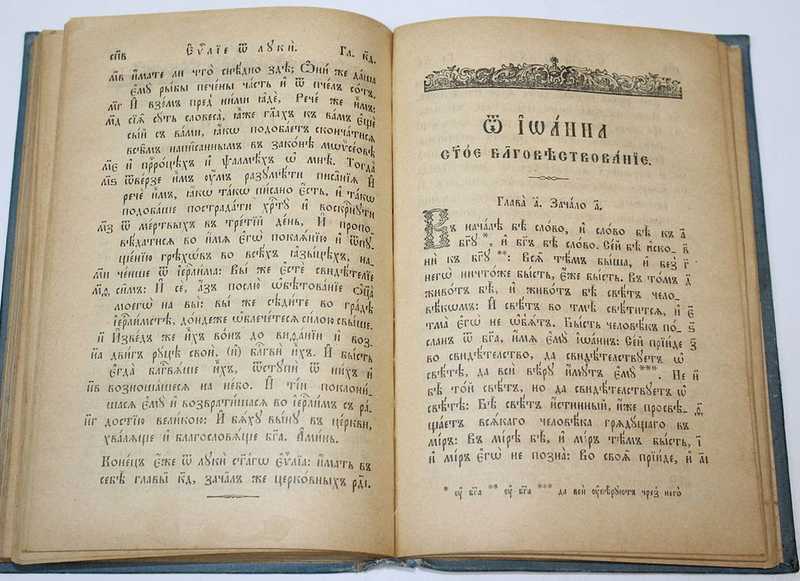 спв Єѵліе ѿ лꙋки̑. Гл. к҃д.
м҃в и҆́мате ли что̀ снѣ́дно здѣ̀; Ѻ҆ни́ же да́ша
є҆мꙋ̀ ры́бы пече́ны ча́сть и҆ ѿ пче́лъ со́тъ.
м҃г И҆ взе́мъ пред̾ ни́ми ꙗ҆дѐ, Рече́ же и҆̀мъ:
м҃д сїѧ̑ сꙋ́ть словеса̀, ꙗ҆̀же гл҃ахъ къ ва́мъ є҆щѐ
сы́й съ ва́ми, ꙗ҆́кѡ подоба́етъ сконча́тисѧ
всѣ̑мъ напи̑саннымъ въ зако́нѣ мѡѷсео́вѣ
м҃є и҆ прⷪ҇ро́цѣхъ и҆ ѱалмѣ́хъ ѡ҆ мнѣ̀. Тогда̀
м҃ѕ ѿве́рзе и҆̀мъ ᲂу҆́мъ разꙋмѣ́ти писа̑нїѧ И҆
речѐ и҆̀мъ, ꙗ҆́кѡ та́кѡ пи́сано є҆́сть, и҆ та́кѡ
подоба́ше пострада́ти хрⷭ҇тꙋ̀ и҆ воскрⷭ҇нꙋти
м҃з ѿ ме́ртвыхъ въ тре́тїй де́нь, И҆ пропо-
вѣ́датисѧ во и҆́мѧ є҆гѡ̀ покаѧ́нїю и҆ ѿпꙋ-
ще́нїю грѣхѡ́въ во всѣ́хъ ꙗ҆зы́цѣхъ, на-
м҃и че́нше ѿ і҆ерⷭ҇ли́ма: Вы́ же є҆стѐ свидѣ́телїе
м҃ѳ. си̑мъ: И҆ сѐ, а҆́зъ послю̀ ѡ҆бѣтова́нїе ѻ҆ц҃а̀
моегѡ̀ на вы̀: вы́ же сѣди́те во гра́дѣ
і҆ерⷭ҇ли́мстѣ, до́ндеже ѡ҆блече́тесѧ си́лою свы́ше.
н҃ И҆зве́дъ же и҆̀хъ во́нъ до виѳа́нїи и҆ воз-
н҃а дви́гъ рꙋ́цѣ своѝ, (и҆) бл҃гвѝ и҆̀хъ. И҆ бы́сть
є҆гда̀ бл҃гвѧ́ше и҆̀хъ, ѿстꙋпѝ ѿ ни́хъ и҆
н҃в возноша́шесѧ на не́бо. И҆ ті́и поклони́-
шасѧ є҆мꙋ̀ и҆ возврати́шасѧ во і҆ерⷭ҇ли́мъ съ ра́-
н҃г достїю вели́кою: И҆ бѧ́хꙋ вы́нꙋ въ це́ркви,
хва́лѧще и҆ благословѧ́ще бг҃а. А҆ми́нь.
Коне́цъ є҆́же ѿ лꙋкѝ ст҃а́гѡ є҆ѵⷢ҇лїа: и҆́мать въ
себѣ̀ главы̑ к҃д, зача́лъ же церко́вныхъ рд҃і.
Ѿ ІѠА́ННА
СТО́Е БЛ҃ГОВѢСТВОВА́НІЕ.
Глава̀ а҃. Зача́ло а҃.
Въ нача́лѣ бѣ̀ сло́во, и҆ сло́во бѣ̀ къ а҃
бг҃ꙋ *, и҆ бг҃ъ бѣ̀ сло́во. Се́й бѣ̀ и҆скони- в҃
нѝ къ бг҃ꙋ **: Всѧ̑ тѣ́мъ бы́ша, и҆ без̾ г҃
негѡ̀ ничто́же бы́сть, є҆́же бы́сть. Въ то́мъ д҃
живо́тъ бѣ̀, и҆ живо́тъ бѣ̀ свѣ́тъ чело-
вѣ́кѡмъ: И҆ свѣ́тъ во тмѣ̀ свѣ́титсѧ, и҆ є҃
тма̀ є҆гѡ̀ не ѡ҆б̾ѧ́тъ. Бы́сть человѣ́къ по́- ѕ҃
сланъ ѿ бг҃а, и҆́мѧ є҆мꙋ̀ і҆ѡа́ннъ: Се́й прїи́де з҃
во свидѣ́тельство, да свидѣ́тельствꙋетъ ѡ҆
свѣ́тѣ, да всѝ вѣ́рꙋ и҆́мꙋтъ є҆мꙋ̀ ***. Не и҃
бѣ̀ то́й свѣ́тъ, но да свидѣ́тельствꙋетъ ѡ҆
свѣ́тѣ: Бѣ̀ свѣ́тъ и҆́стинный, и҆́же просвѣ- ѳ҃
ща́етъ всѧ́каго человѣ́ка грѧдꙋ́щаго въ
мі́ръ: Въ мі́рѣ бѣ̀, и҆ мі́ръ тѣ́мъ бы́сть, і҃
и҆ мі́ръ є҆гѡ̀ не позна̀: Во своѧ̑ прїи́де, и҆ а҃і
* ᲂу҆ бг҃а ** ᲂу҆ бг҃а *** да всѝ ᲂу҆вѣ́рꙋютъ чрез̾ него̀